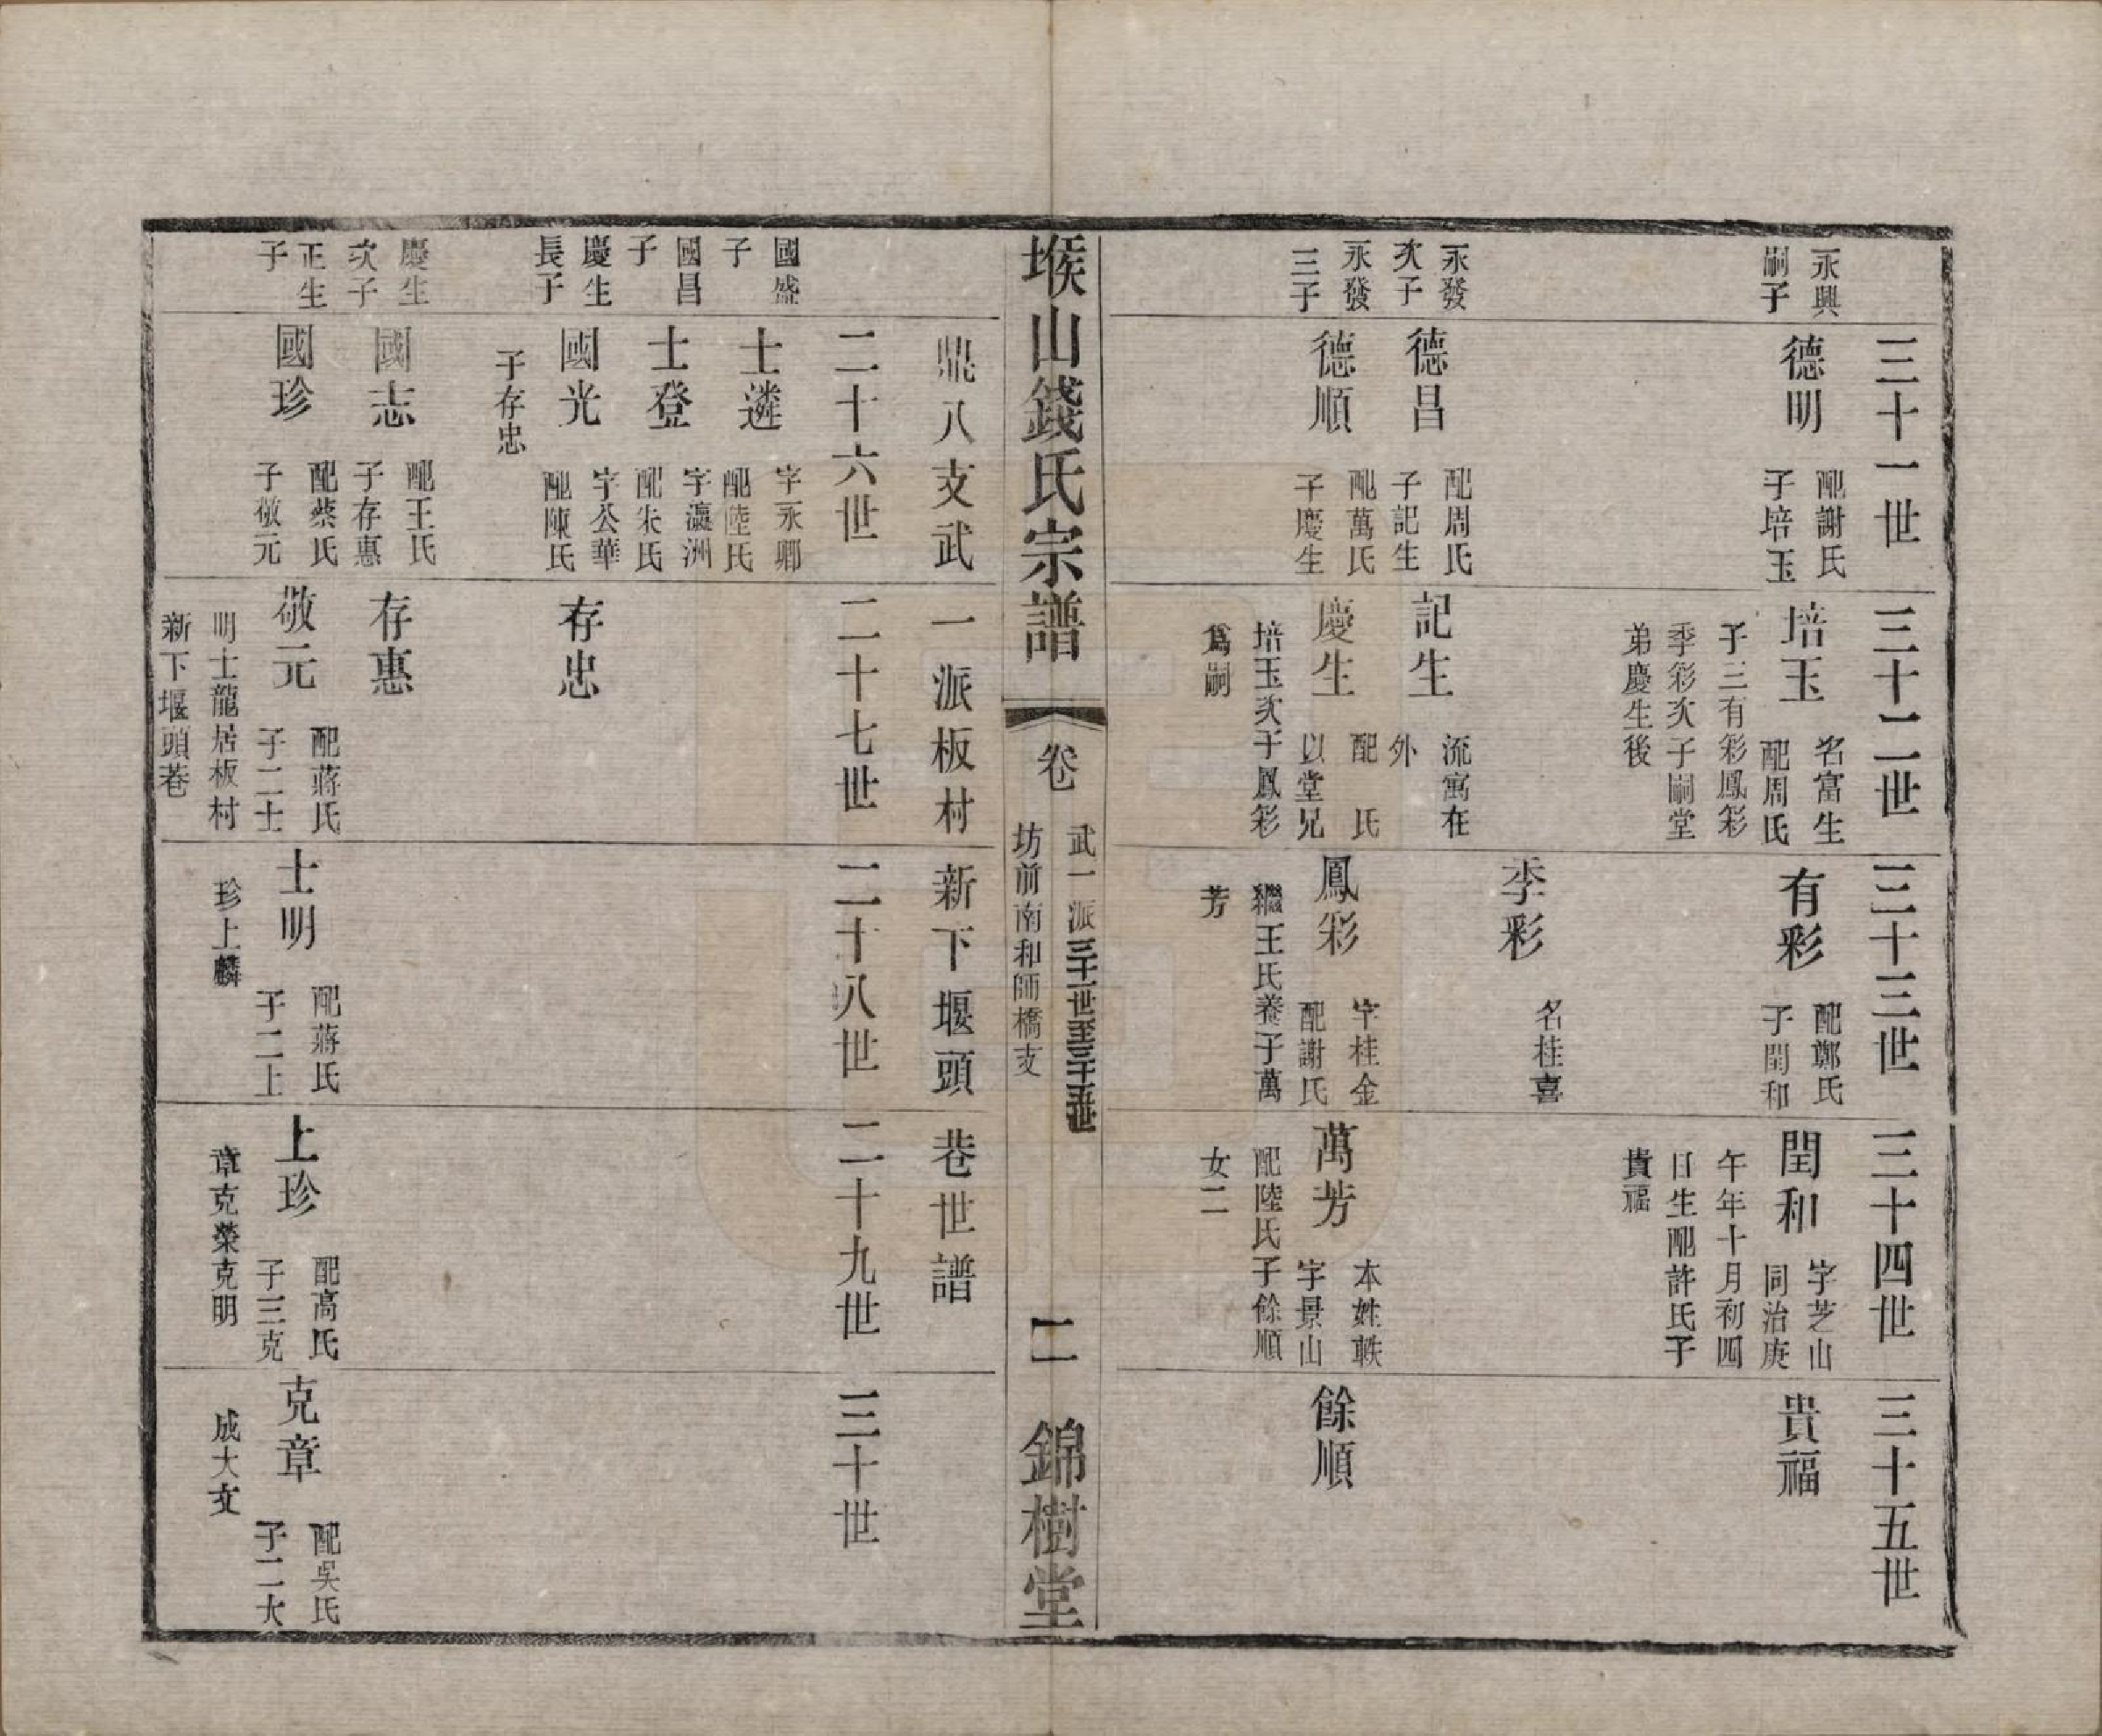 三十一世
永興
嗣子
德明
配謝氏
子培玉
永發
次子
德昌
配周氏
子記生
永發
三子
德順
配萬氏
子慶生
三十二世
培玉
名富生
配周氏
子三有彩鳳彩
季彩次子嗣堂
弟慶生後
記生
流寓在
外
慶生
配　氏
以堂兄
培玉次子鳳彩
爲嗣
三十三世
有彩
配鄭氏
子閏和
季彩
名桂喜
鳳彩
字桂金
配謝氏
繼王氏養子萬
芳
三十四世
閏和
字芝山
同治庚
午年十月初四
日生配許氏子
貴福
萬芳
本姓軼
字景山
配陸氏子餘順
女二
三十五世
貴福
餘順
堠山錢氏宗譜
卷
武一派三十一世至三十五世
坊前南和師橋支
二
錦樹堂
鼎八支武一派板村新下堰頭巷世譜
二十六世
國盛
子
士遴
字永卿
配陸氏
國昌
子
士登
字瀛洲
配朱氏
慶生
長子
國光
字公華
配陳氏
子存忠
慶生
次子
國志
配王氏
子存惠
正生
子
國珍
配蔡氏
子敬元
二十七世
存忠
存惠
敬元
配蔣氏
子二士
明士龍居板村
新下堰頭巷
二十八世
士明
配蔣氏
子二上
珍上麟
二十九世
上珍
配高氏
子三克
章克榮克明
三十世
克章
配吳氏
子二大
成大文